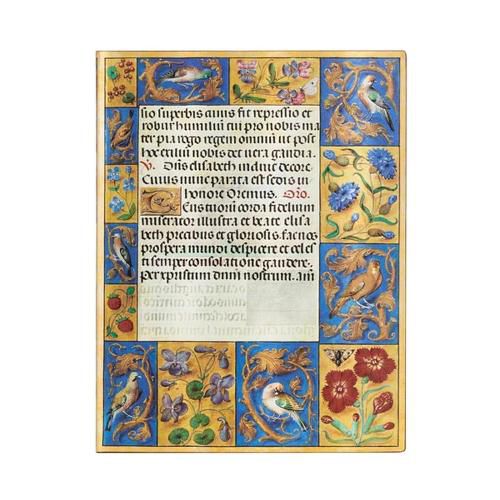 sio superbis cuius fit repressio et
robur humilium cui pro nobis ma
ter pia rogo regem omnium ut post
hoc exilium nobis det vera gaudia.
V. Dius elisabeth induit decore.
Cuius nunc parata est sedis in
honore Oremus. Oro.
Tuorum corda fidelium
miserator illustra et beate elisa
beth precibus et gloriosis facnos
prospera mundi despicere et celes
ti semper consolatione gaudere.
Per xpristum dnm nostrum. am